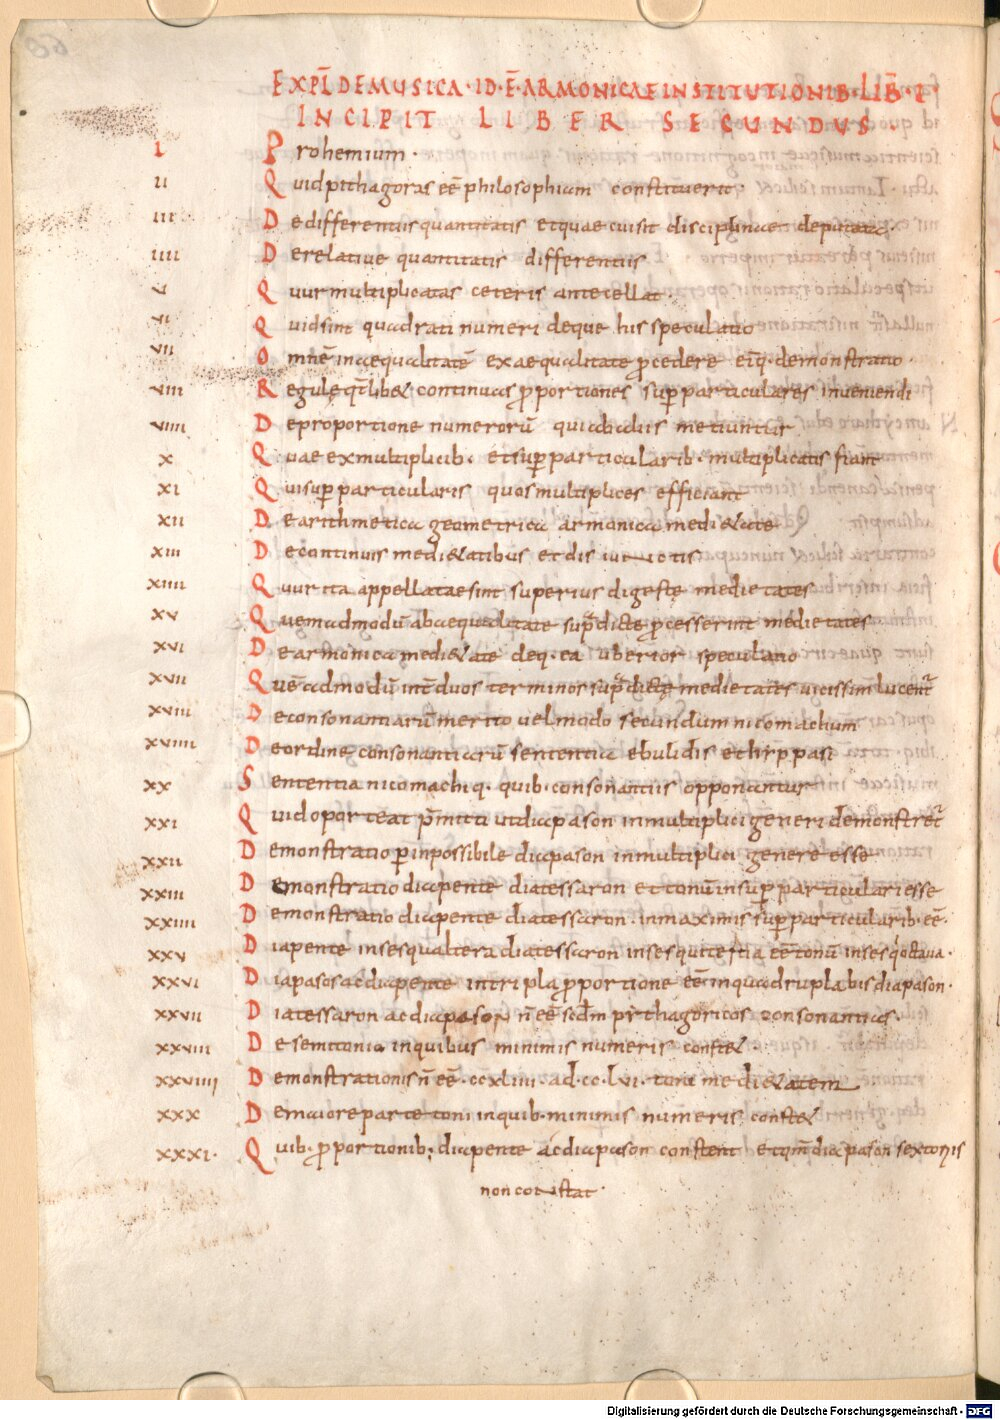 EXPL̄ DE MUSICA · ID · Ē · ARMONICAE INSTITUTIONIB · LIB̄ · I ·
INCIPIT LIBER SECUNDUS .
I Prohemium ·
II Quid pithagoras eē philosophiam constituerit ·
III De differentiis quantitatis et quae cuisit disciplinae deputata ·
IIII De relative quantitatis differentiis
V Qur multiplicatas ceteris antecellat ·
VI Quid sint quadrati numeri deque his speculatio
VII Omnē inaequalitatē ex aequalitate p̄cedere eiq· demonstratio ·
VIII Regule qt̄lib& continuas p̄portiones sup̄particulares inveniendi
VIIII De proportione numerorū qui ab aliis metiuntur
X Quae ex multiplicib· et sup̄particularib· multiplicatis fiant
XI Qui sup̄particularis quos multiplices efficiant
XII De arithmetica geometrica armonica medi&ate
XIII De continuis medi&atibus et disiunctis
XIIII Qur ita appellatae sint superius digeste medietates
XV Quemadmodū ab aequalitate sup̄dicte p̄cesserint medietates
XVI De armonica medi&ate deq· ea uberior speculatio
XVII Quēadmodū int̄ duos terminos sup̄dictę medietates vicissim lucent̄
XVIII De consonantiarū merito vel modo secundum nicomachum
XVIIII De ordine consonantiarū sententia ebulidis et hippasi
XX Sententia nicomachi q· quib· consonantiis opponantur
XXI Quid oporteat p̄mitti ut diapason in multiplici generi demonstret̄
XXII Demonstratio p̄ inpossibile diapason in multiplici genere esse
XXIII Demonstratio diapente diatessaron et tonū in sup̄particulari esse
XXIIII Demonstratio diapente diatessaron · in maximis sup̄particularib· eē ·
XXV Diapente in sesqualtera diatessaron in sesquitertia eē tonū in sesq octava ·
XXVI Diapasos ac diapente in tripla p̄portione eē in quadrupla bis diapason ·
XXVII Diatessaron ac diapason n̄ eē scd̄m pythagoricos consonantias ·
XXVIII De semitonio in quibus minimis numeris const& ·
XXVIIII Demonstrationis n̄ eē · ccxliii · ad · cclvi · toni medi&atem
XXX De maiore parte toni in quib· minimis numeris const&
XXXI · Quib· p̄portionib; diapente ac diapason constent et qm̄ diapason sex tonis
non constat ·
Digitalisierung gefördert durch die Deutsche Forschungsgemeinschaft - DFG